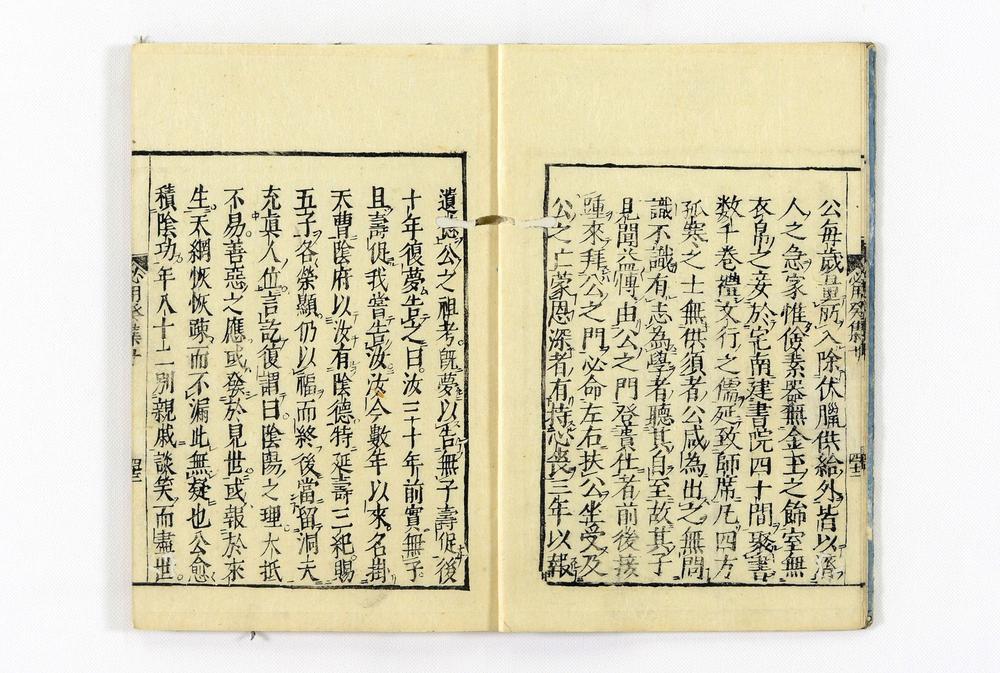 公毎歳量所入除伏臘供給外皆以濟
人之急家惟儉素器無金玉之飾室無
衣帛之妾於宅南建書院四十間聚書
数千巻禮文行之儒延致師席凡四方
孤寒之士無供須者公咸為出之無問
識不識有志為學者聽其自至故其子
見聞益博由公之門登貴仕者前後接
踵來拜公之門必命左右扶公坐受及
公之亡蒙恩深者有持心喪三年以報
遺公之祖考既夢以告無子壽促後
十年復夢告之曰汝三十年前實無子
且壽促我嘗告汝汝今數年以來名掛
天曹陰府以汝有陰德特延壽三紀賜
五子各榮顯仍以福而終後當留洞天
充眞人位言訖復謂曰陰陽之理大抵
不易善惡之應或發於見世或報於來
生天網恢恢疎而不漏此無疑也公愈
積陰功年八十二別親戚談笑而盡世